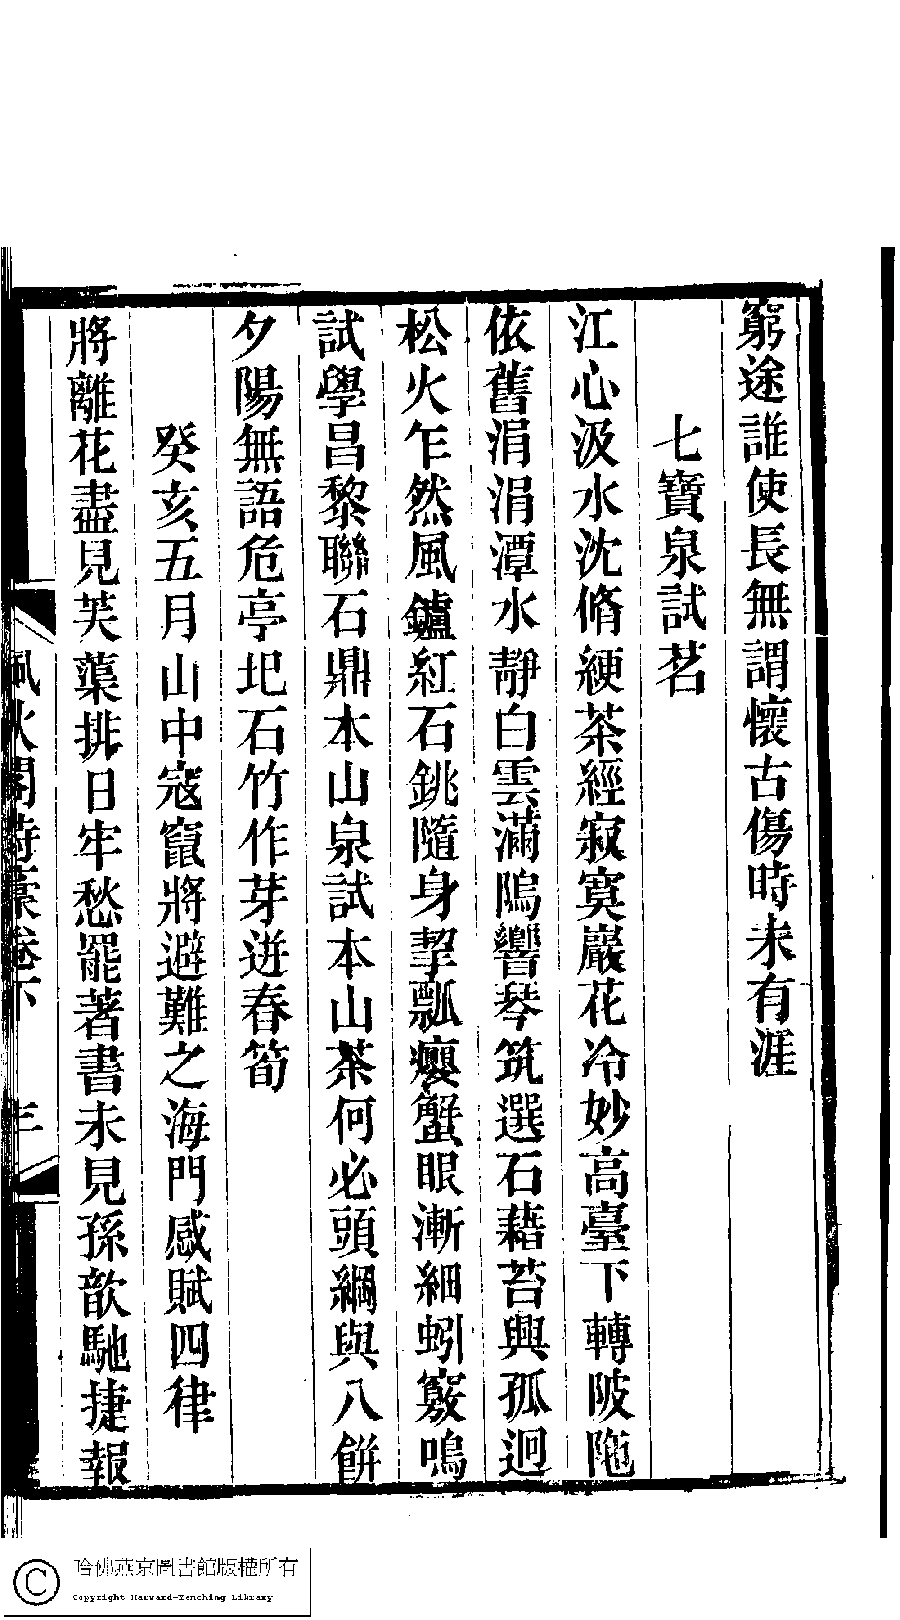 窮途誰使長無謂懷古傷時未有涯
七寶泉試茗
江心汲水沈脩綆茶經寂寞巖花冷妙高臺下轉陂陁
依舊涓涓潭水靜白雲滿隖響琴筑選石藉苔興孤迥
松火乍然風鑪紅石銚隨身挈瓢癭蟹眼漸細蚓竅鳴
試學昌黎聯石鼎本山泉試本山茶何必頭綱與八餅
夕陽無語危亭圯石竹作芽迸春筍
癸亥五月山中寇竄將避難之海門感賦四律
將離花盡見芙蕖排日牢愁罷著書未見孫歆馳捷報
閣詩稾卷下
三
哈佛燕京圖書館版權所有
Copyright Harvard-Yenching Library